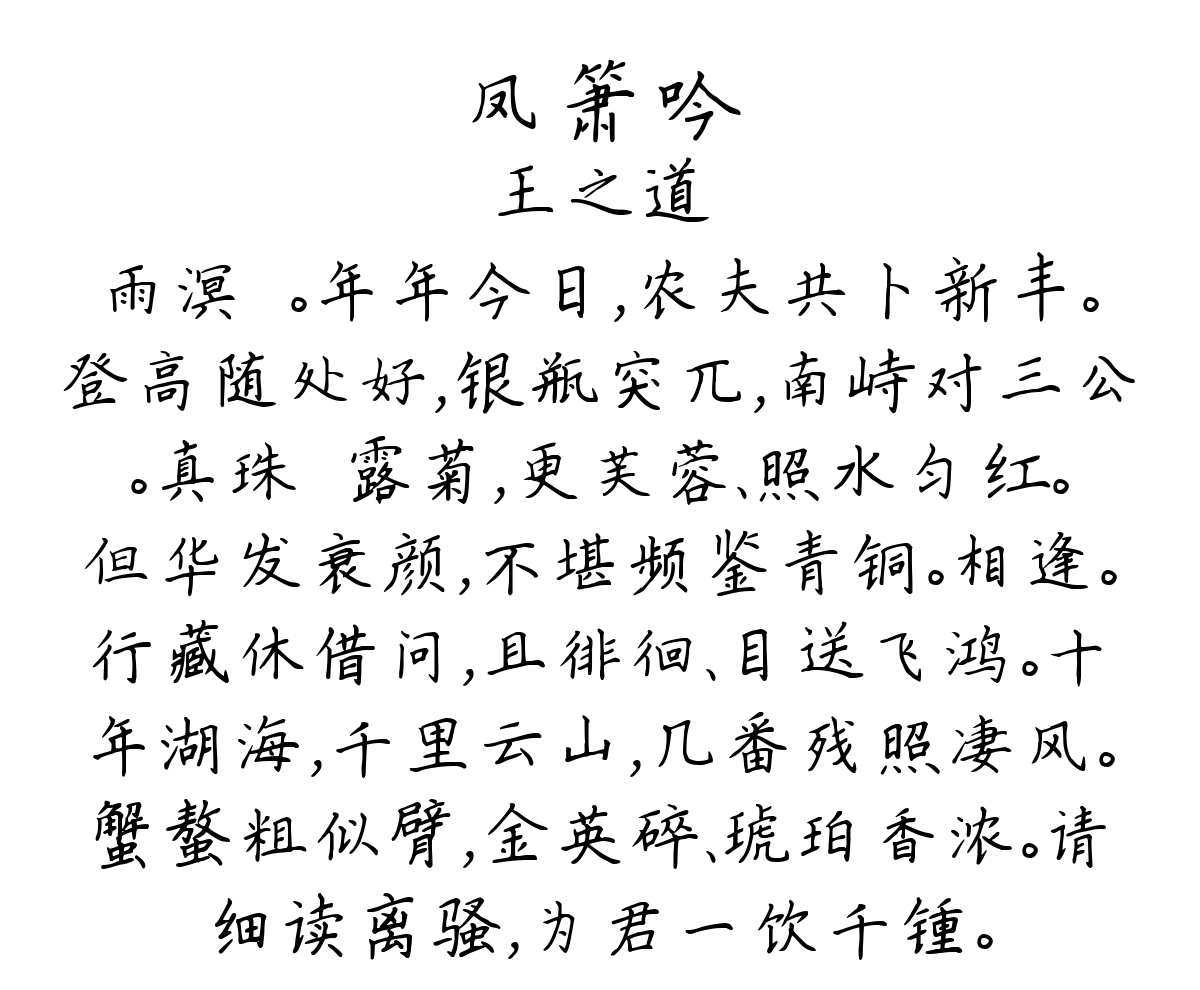 凤箫吟
王之道
雨溟 。年年今日,农夫共卜新丰。
登高随处好,银瓶突兀,南峙对三公
。真珠 露菊,更芙蓉、照水匀红。
但华发衰颜,不堪频鉴青铜。相逢。
行藏休借问,且徘徊、目送飞鸿。十
年湖海,千里云山,几番残照凄风。
蟹螯粗似臂,金英碎、琥珀香浓。请
细读离骚,为君一饮千锺。